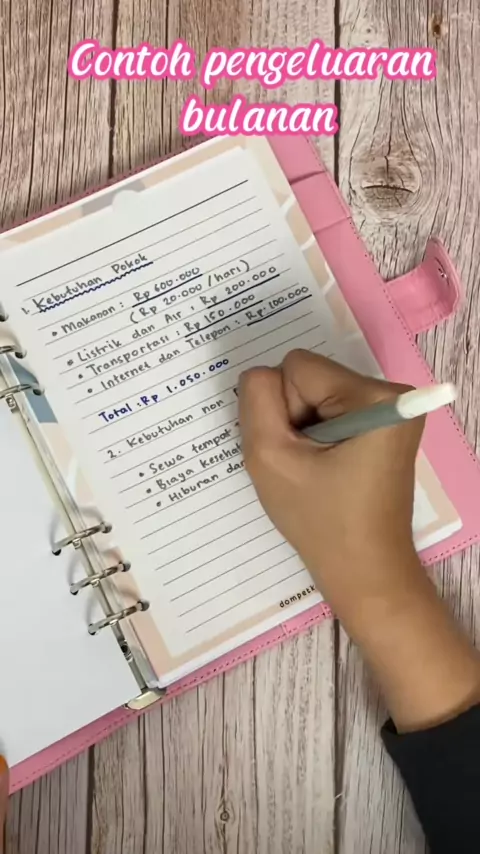 Contoh pengeluaran
bulanan
1. Kebutuhan Pokok
• Makanan : Rp 600.000
(Rp 20.000 / hari)
• Listrik dan Air : Rp 200.000
• Transportasi : Rp 150.000
• Internet dan Telepon : Rp. 100.000
Total : Rp 1.050.000
2. Kebutuhan non
• Sewa tempat
• Biaya
• Hiburan